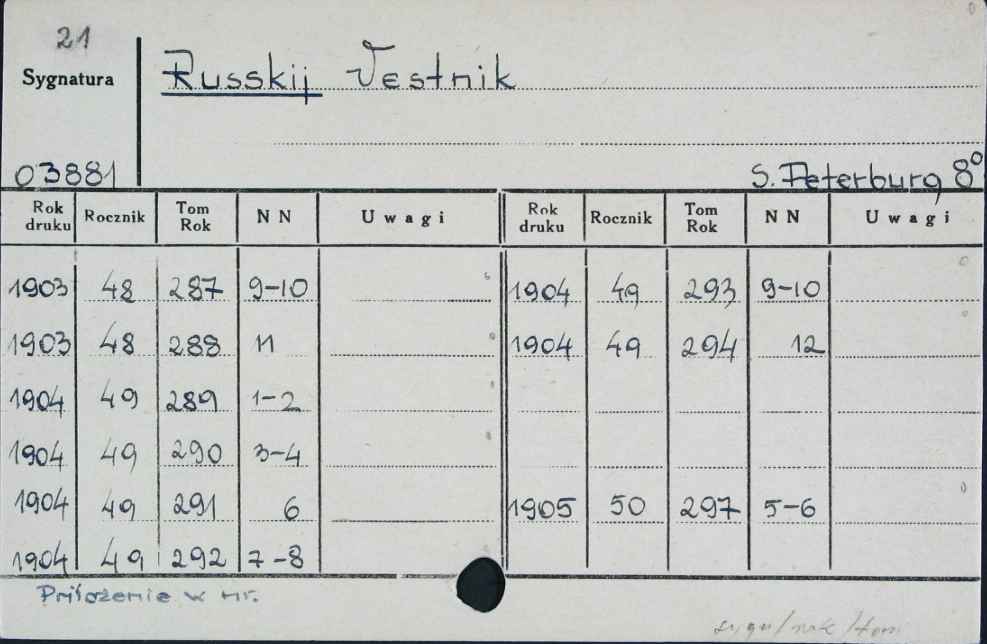 21
Sygnatura Russkij Vestnik
03881 S. Peterburg 8°
Rok druku Rocznik Tom Rok NN Uwagi Rok druku Rocznik Tom Rok NN Uwagi
1903 48 287 9-10 1904 49 293 9-10
1903 48 288 11 1904 49 294 12
1904 49 289 1-2
1904 49 290 3-4
1904 49 291 6 1905 50 297 5-6
1904 49 292 7-8
Priłożenie w nr.
sygn/rok/tom